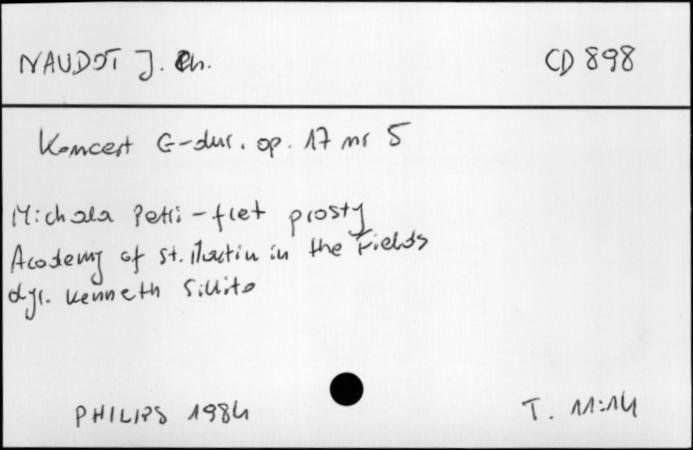 NAUDOT J. Ch. CD 898
Koncert G-dur. op. 17 nr 5
Michala Petri - flet prosty
Academy of St. Martin in the Fields
dyr. Kenneth Sillito
PHILIPS 1984 T. 11:14